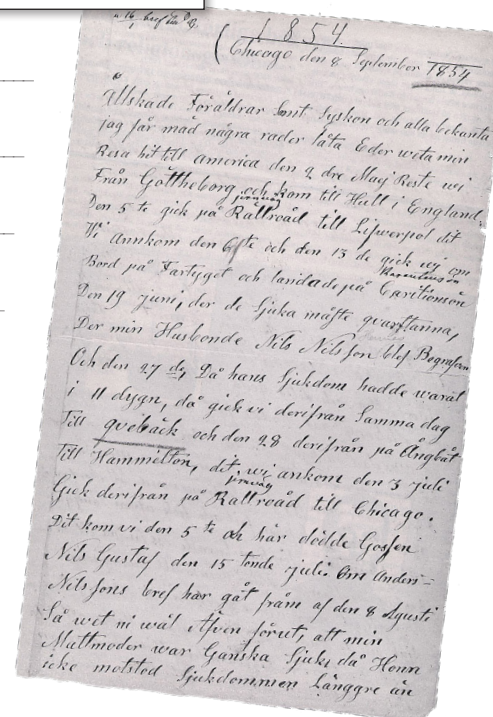 1854.
(Chicago den 8 September 1854
Älskade Föräldrar Samt Syskon och alla bekanta
jag får med några rader låta Eder weta min
Resa hit till america den 2 dre Maij Reste wi
Från Göttheborg och kom till Hull i England.
jernväg
Den 5 te gick på Rallroad till Lifwerpol dit
Wi annkom den 6te och den 13 de gick wi om
Bord på Fartyget och landade på
Den 19 juni, der de Sjuka måste qvarstanna,
Der min Husbonde Nils Nilsson blef Begrafven
Och den 27 de, Då hans Sjukdom hadde warat
i 11 dygn, då gick vi derifrån Samma dag
Till qvebäck och den 28 derifrån på Ångbåt
Till Hammilton, dit wi ankom den 3 juli
jernväg
Gick derifrån på Rallroad till Chicago.
Dit kom vi den 5 te och här dödde Gossen
Nils Gustaf den 15 tonde juli. Om Anders=
Nilssons bref har gåt fram af den 8 Agusti
Så wet ni wäl äfven förut, att min
Mattmoder war Ganska Sjuk, då Honn
icke motstod Sjukdommen Länggre än